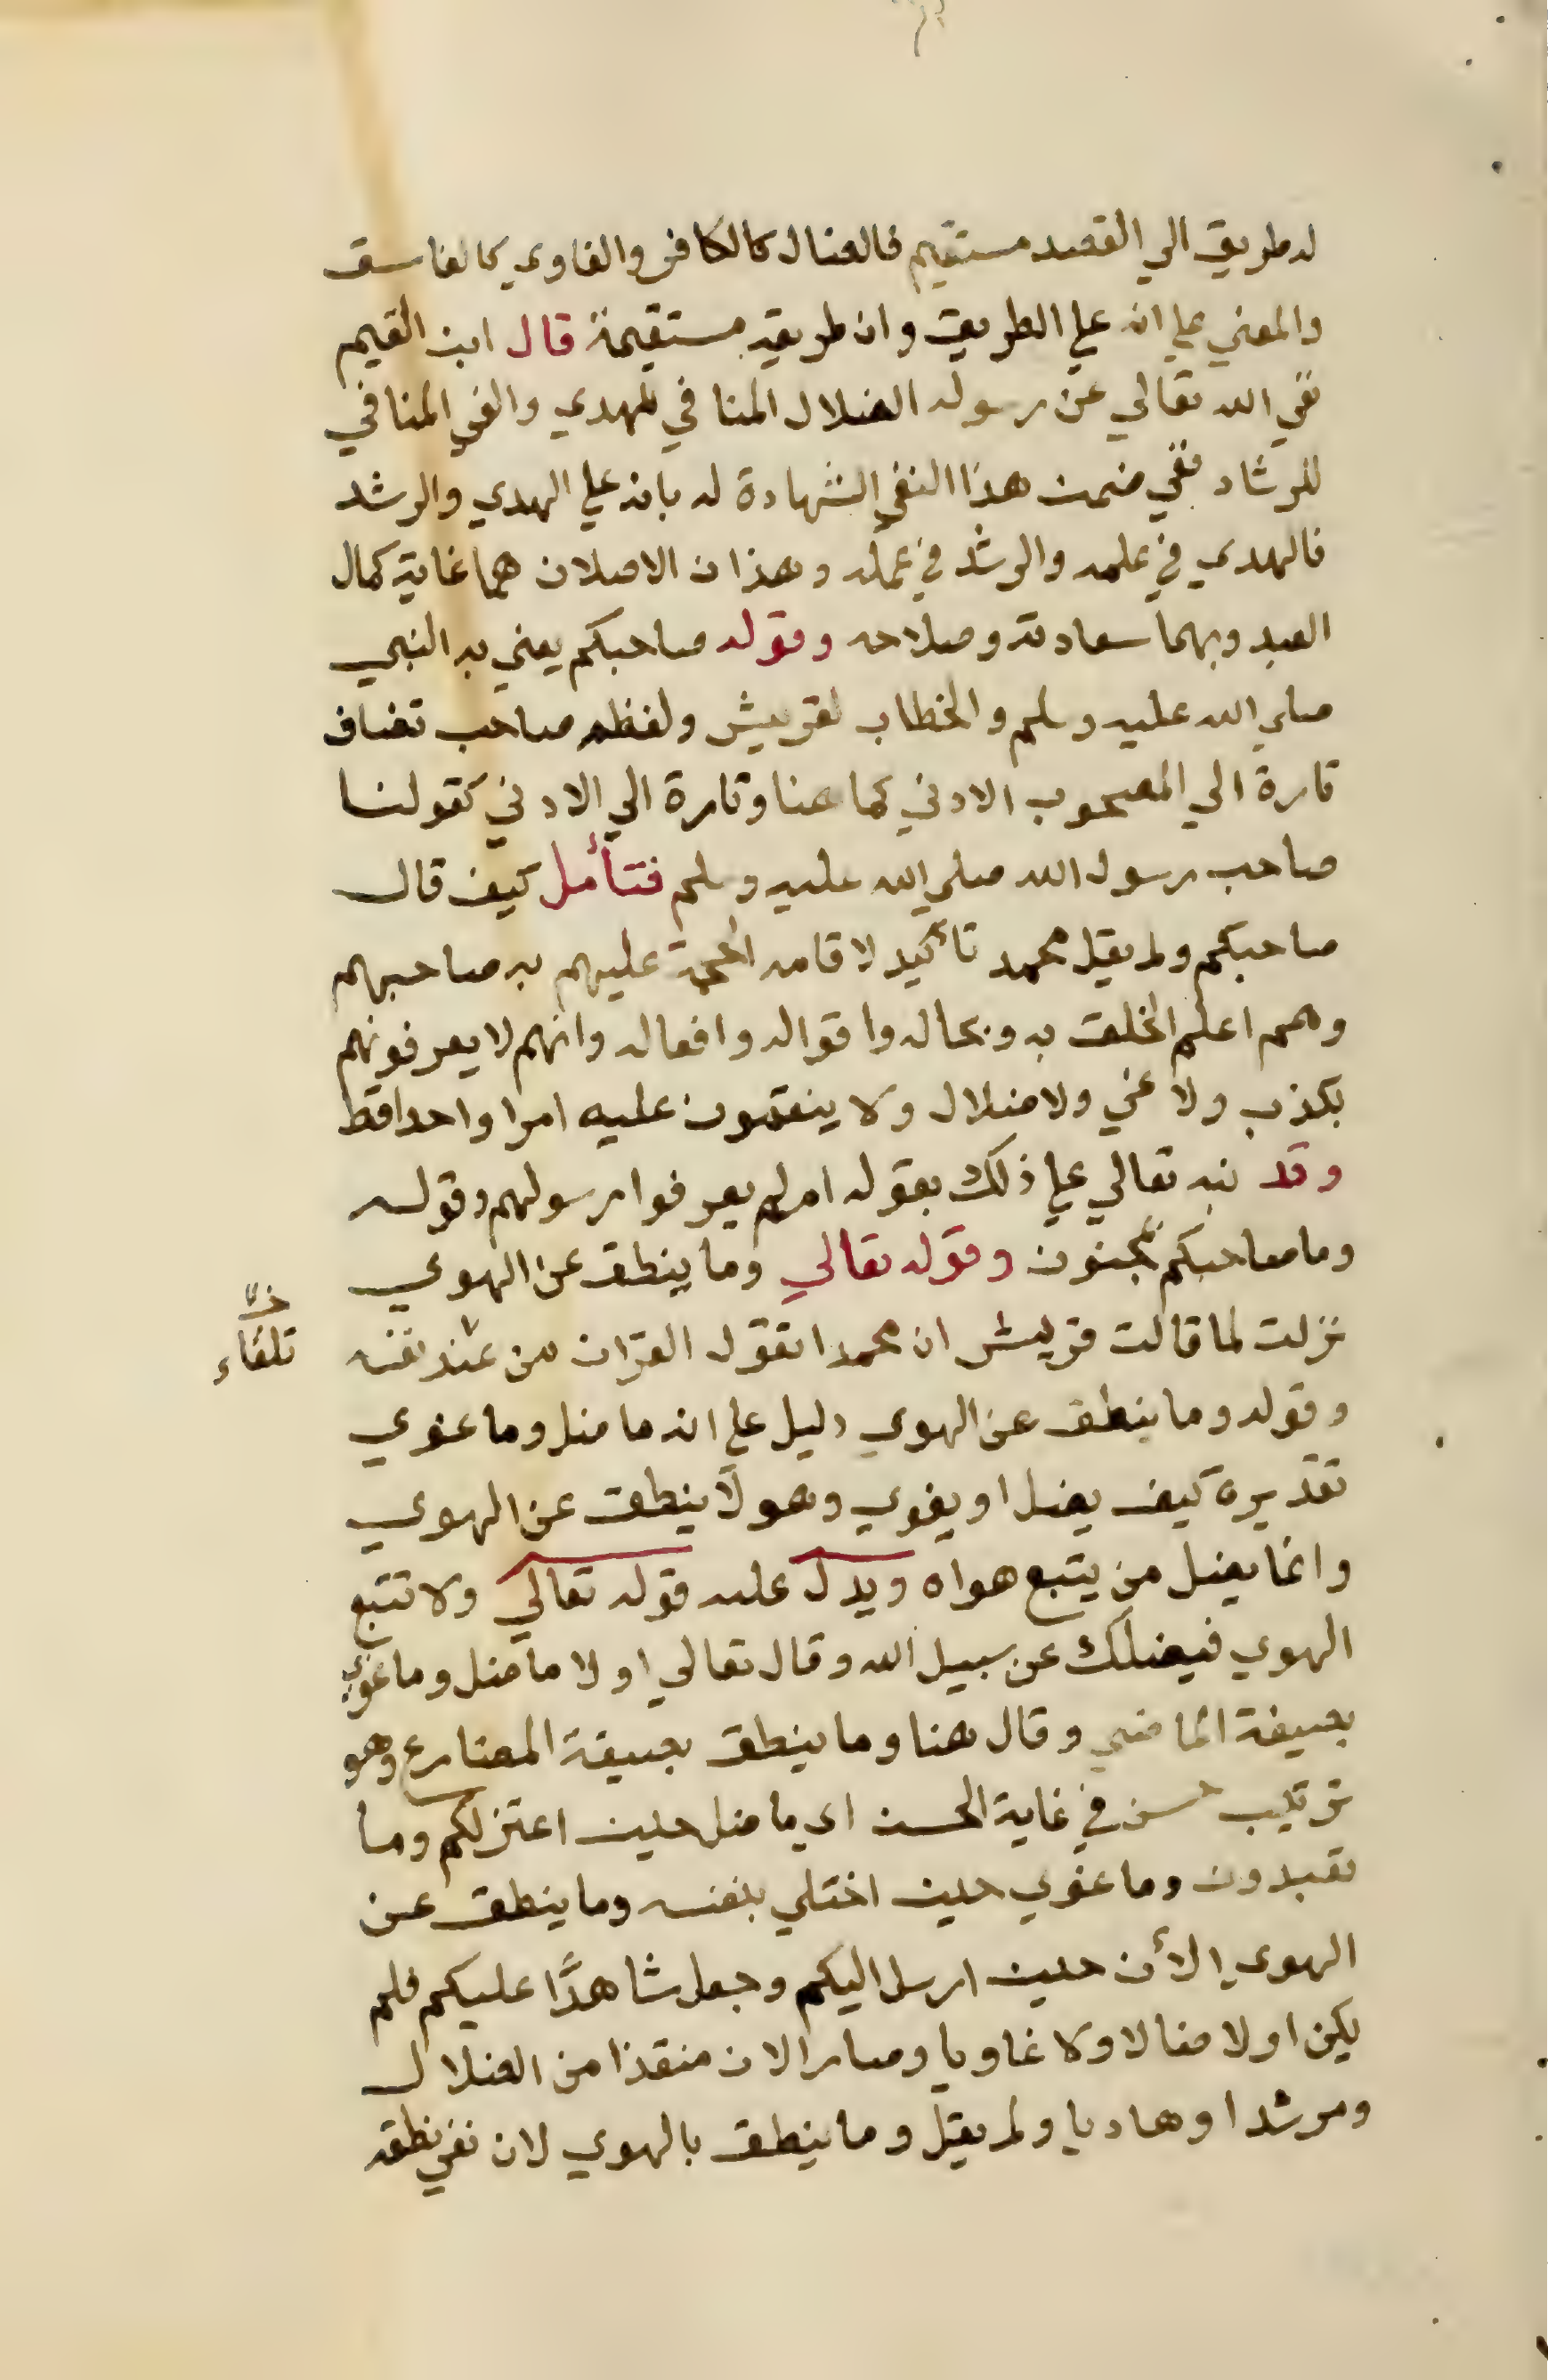 له طريق الي القصد مستقيم فالضال كالكافر والغاوي كالفاسق
والمعني علي انه علي الطريق وان طريقه مستقيمة قال ابن القيم
نفي الله تعالي عن رسوله الضلال المنافي للهدي والغي المنافي
للرشاد ففي ضمن هذا النفي الشهادة له بانه علي الهدي والرشد
فالهدي في علمه والرشد في عمله وهذان الاصلان هما غاية كمال
العبد وبهما سعادته وصلاحه وقوله صاحبكم يعني به النبي
صلي الله عليه وسلم والخطاب لقريش ولفظه صاحب تضاف
تارة الي المصحوب الادني كما هنا وتارة الي الادني كقولنا
صاحب رسول الله صلي الله عليه وسلم فتأمل كيف قال
صاحبكم ولم يقل محمد تأكيد لاقامه الحجة عليهم به صاحبهم
وهم اعلم الخلق به وبحاله واقواله وافعاله وانهم لا يعرفونهم
بكذب ولا غي ولا ضلال ولا ينقمون عليه امرا واحدا قط
وقد نبه تعالي علي ذلك بقوله ام لم يعرفوا رسولهم وقوله
وما صاحبكم بمجنون وقوله تعالي وما ينطق عن الهوي
نزلت لما قالت قريش ان محمدا تقول القرآن من عند نفسه
تلقاء
وقوله وما ينطق عن الهوي دليل علي انه ما ضل وما غوي
تقديره كيف يضل او يغوي وهو لا ينطق عن الهوي
وانما يضل من يتبع هواه ويدل عليه قوله تعالي ولا تتبع
الهوي فيضلك عن سبيل الله وقال تعالي اولا ما ضل وما غوي
بصيغة الماضي وقال هنا وما ينطق بصيغة المضارع وهو
ترتيب حسن في غاية الحسن اي ما ضل حين اعتزلكم وما
تعبدون وما غوي حين اختلي بنفسه وما ينطق عن
الهوي الأن حين ارسل اليكم وجعل شاهدًا عليكم فلم
يكن اولا ضالا ولا غاويا وصار الان منقذا من الضلال
ومرشدا وهاديا ولم يقل وما ينطق بالهوي لان نفي نطقه